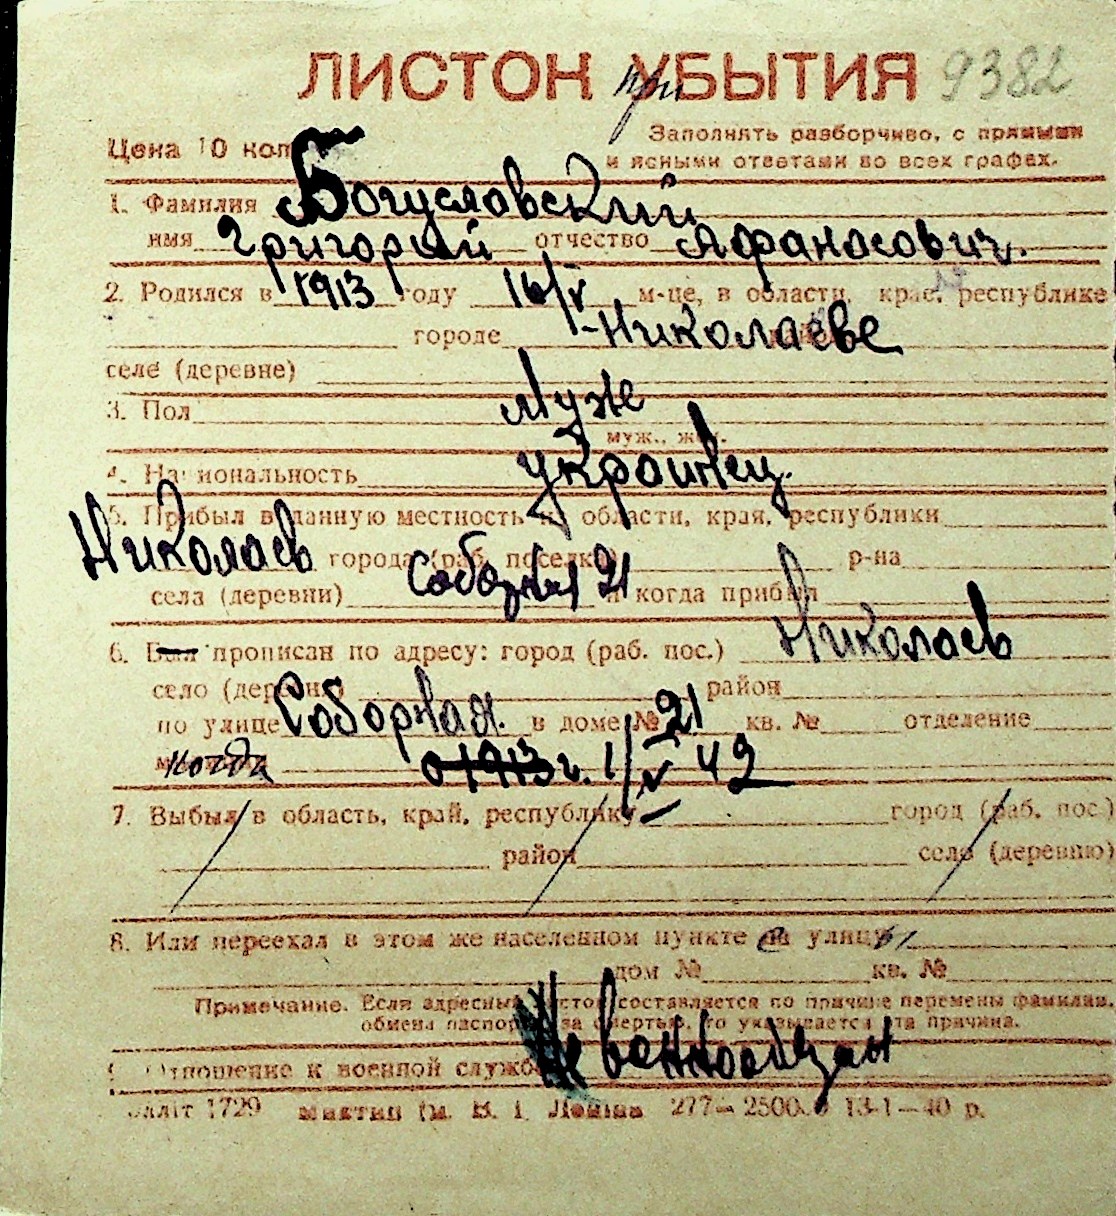 ЛИСТОК приУБЫТИЯ 9382
Цена 10 коп. Заполнять разборчиво, с прямыми
и ясными ответами во всех графах.
1. Фамилия Богуславский
имя Григорий отчество Афанасович.
2. Родился в 1913 году 16/V м-це, в области, крае, республике
городе Николаеве
селе (деревне)
3. Пол Муже
муж., жен.
4. Национальность украинец.
5. Прибыл в данную местность из области, края, республики
Николаев города (раб. поселка) Соборная 21 р-на
села (деревни) и когда прибыл
6. Был прописан по адресу: город (раб. пос.) Николаев
село (деревня) район
по улице Соборная. в доме № 21 кв. № отделение
когда с 1913 г. 1/V 42
7. Выбыл в область, край, республику город (раб. пос.)
район село (деревню)
8. Или переехал в этом же населенном пункте с улицы
дом № кв. №
Примечание. Если адресный листок составляется по причине перемены фамилии,
обмена паспорта, за смертью, то указывается эта причина.
Отношение к военной службе Не военнообязан
1729 им. В. І. Леніна 277—2500. 13-1—40 р.